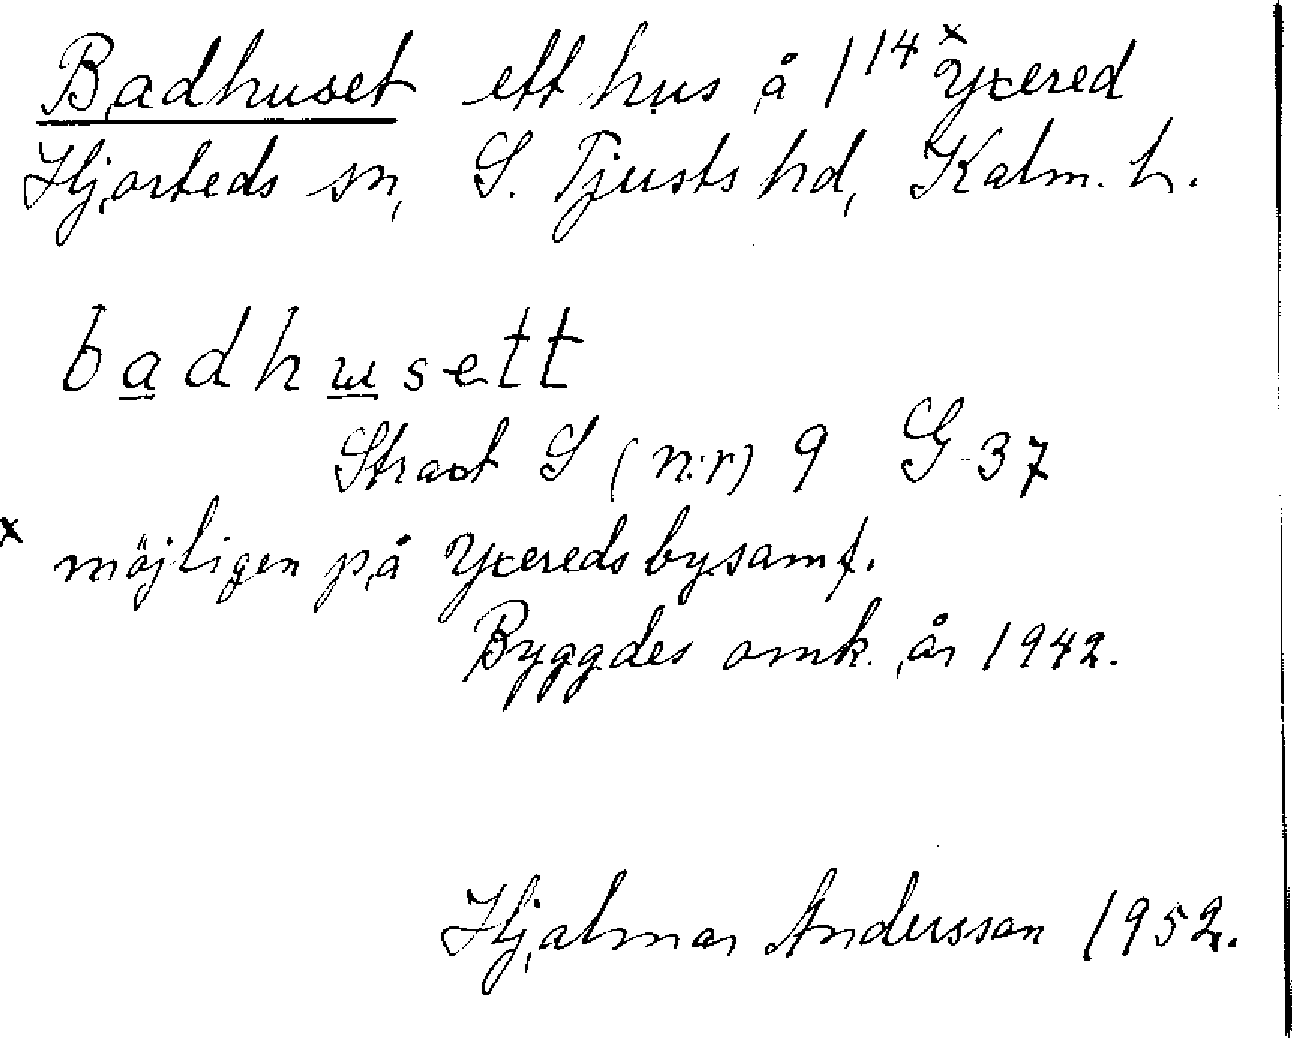 Badhuset ett hus å 1¹⁴ ˣYxered
Hjorteds sn, S. Tjusts hd, Kalm. L.
badhusett
Strax S (n:r) 9 G 37
x möjligen på Yxereds bysamf.
Byggdes omk. år 1942.
Hjalmar Andersson 1952.